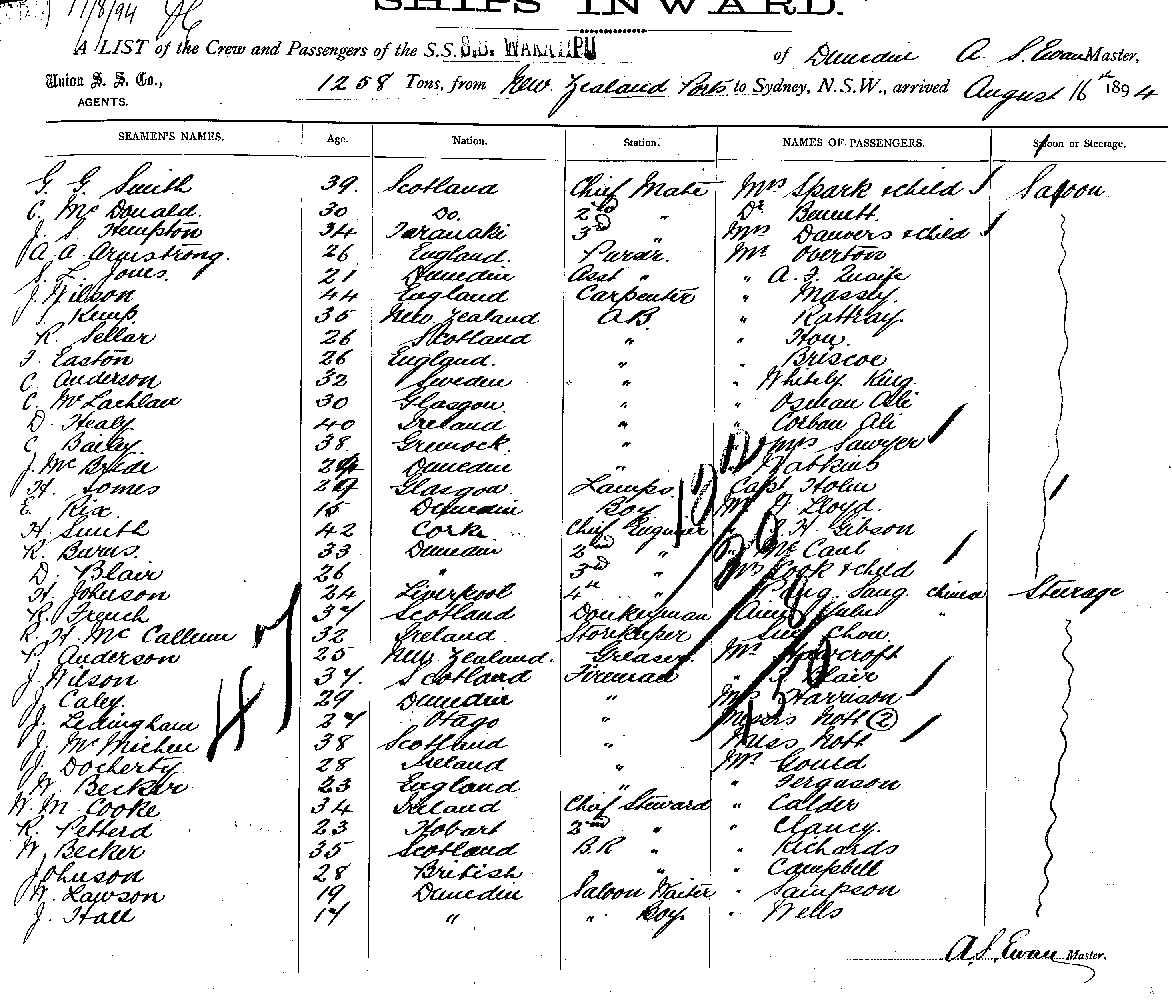 17/8/94
SHIPS INWARD.
A LIST of the Crew and Passengers of the S.S. S.S. WAKATIPU of Dunedin A. S. Ewan Master,
Union S. S. Co., AGENTS. 1258 Tons, from New Zealand Ports to Sydney, N.S.W., arrived August 16th 1894
SEAMEN'S NAMES. Age. Nation. Station. NAMES OF PASSENGERS. Saloon or Steerage.
G. G. Smith 39. Scotland Chief Mate Mrs Spark & child Saloon
C. McDonald. 30 Do. 2nd " Dr Bennett
J. S. Hempton 34 Taranaki 3rd " Mrs Danvers & child
A. A. Armstrong. 26 England. Purser. Mr Overton
Jones. 21 Dunedin Asst " " A. F. Quaife
J. Wilson 44 England Carpenter " Massey.
J. Kemp 35 New Zealand A.B. " Rattray.
R. Sellar 26 Scotland " " Hon.
F. Easton 26 England. " " Briscoe
C. Anderson 32 Sweden " " Whitely King
C. McLachlan 30 Glasgow " " Osman Ali
D. Healy 40 Ireland " " Corban Ali
C. Bailey 38 Greenock " Mrs Sawyer
J. McBride 24 Dunedin "
H. Somes 29 Glasgow Lamps. Capt Holm
E. Rix 15 Dunedin Boy Mr J Lloyd.
H. Smith 42 Cork Chief Engineer H Gibson
R. Burns. 33 Dunedin 2nd " McCaul
D. Blair 26 " 3rd " Mrs Cook & child
H. Johnson 24 Liverpool 4th " Sang chinese Steerage
R. French 37 Scotland Donkeyman "
R. H. McCallum 32 Ireland Storekeeper Chou
P. Anderson 25 New Zealand. Greaser. Mr
J. Wilson 37. Scotland Fireman " Blair
J. Caley. 29 Dunedin " Mrs Harrison
J. Ledingham 27 Otago " Misses Nott (2)
J. McMichen 38 Scotland " Miss Nott
J. Docherty 28 Ireland " Mr Gould
W. Becker 23 England " " Ferguson
W. M. Cooke 34 Ireland Chief Steward " Calder
R. Petterd 23 Hobart 2nd " " Clancy.
W. Becker 35 Scotland B.R " " Richards
Johnson 28 British " " Campbell
W. Lawson 19 Dunedin Saloon Waiter " Sampson
J. Hall 17 " " Boy. " Wells
47
12
20
8
150
A. S. Ewan Master.